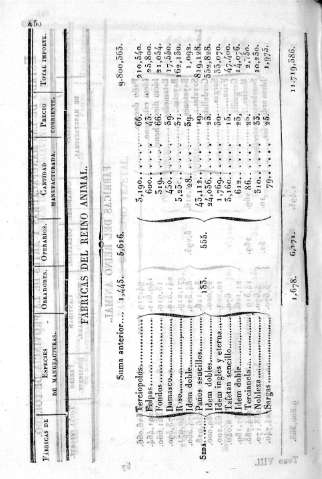 250
FÁBRICAS DE ESPECIES DE MANUFACTURAS. OBRADORES. OPERARIOS. CANTIDAD MANUFACTURADA. PRECIO CORRIENTE. TOTAL IMPORTE.
FÁBRICAS DEL REINO ANIMAL.
Suma anterior.... 1,445. 5,616. 9.800,563.
Terciopelos 3,190. 66. 210,540.
Felpas 600. 43. 25,800.
Fondos 319. 66. 21,054.
Damasco 450. 39. 17,550.
Raso 5,23 31. 162,130.
Idem doble 28. 39. 1,092.
Paños sencillos 43,112. 19. 819,128.
Seda Idem dobles 183. 555. 24,036. 23. 552,828.
Idem ingles y eterna 1,769. 30. 53,070.
Tafetan sencillo 3,160. 15. 47,400.
Idem doble 612. 23. 14,076.
Terciancla 86. 32. 2,750.
Nobleza 310. 33. 10,230.
Sargas 79. 25. 1,975.
1,628. 6,171. 11.719,586.
Tomo VIII.